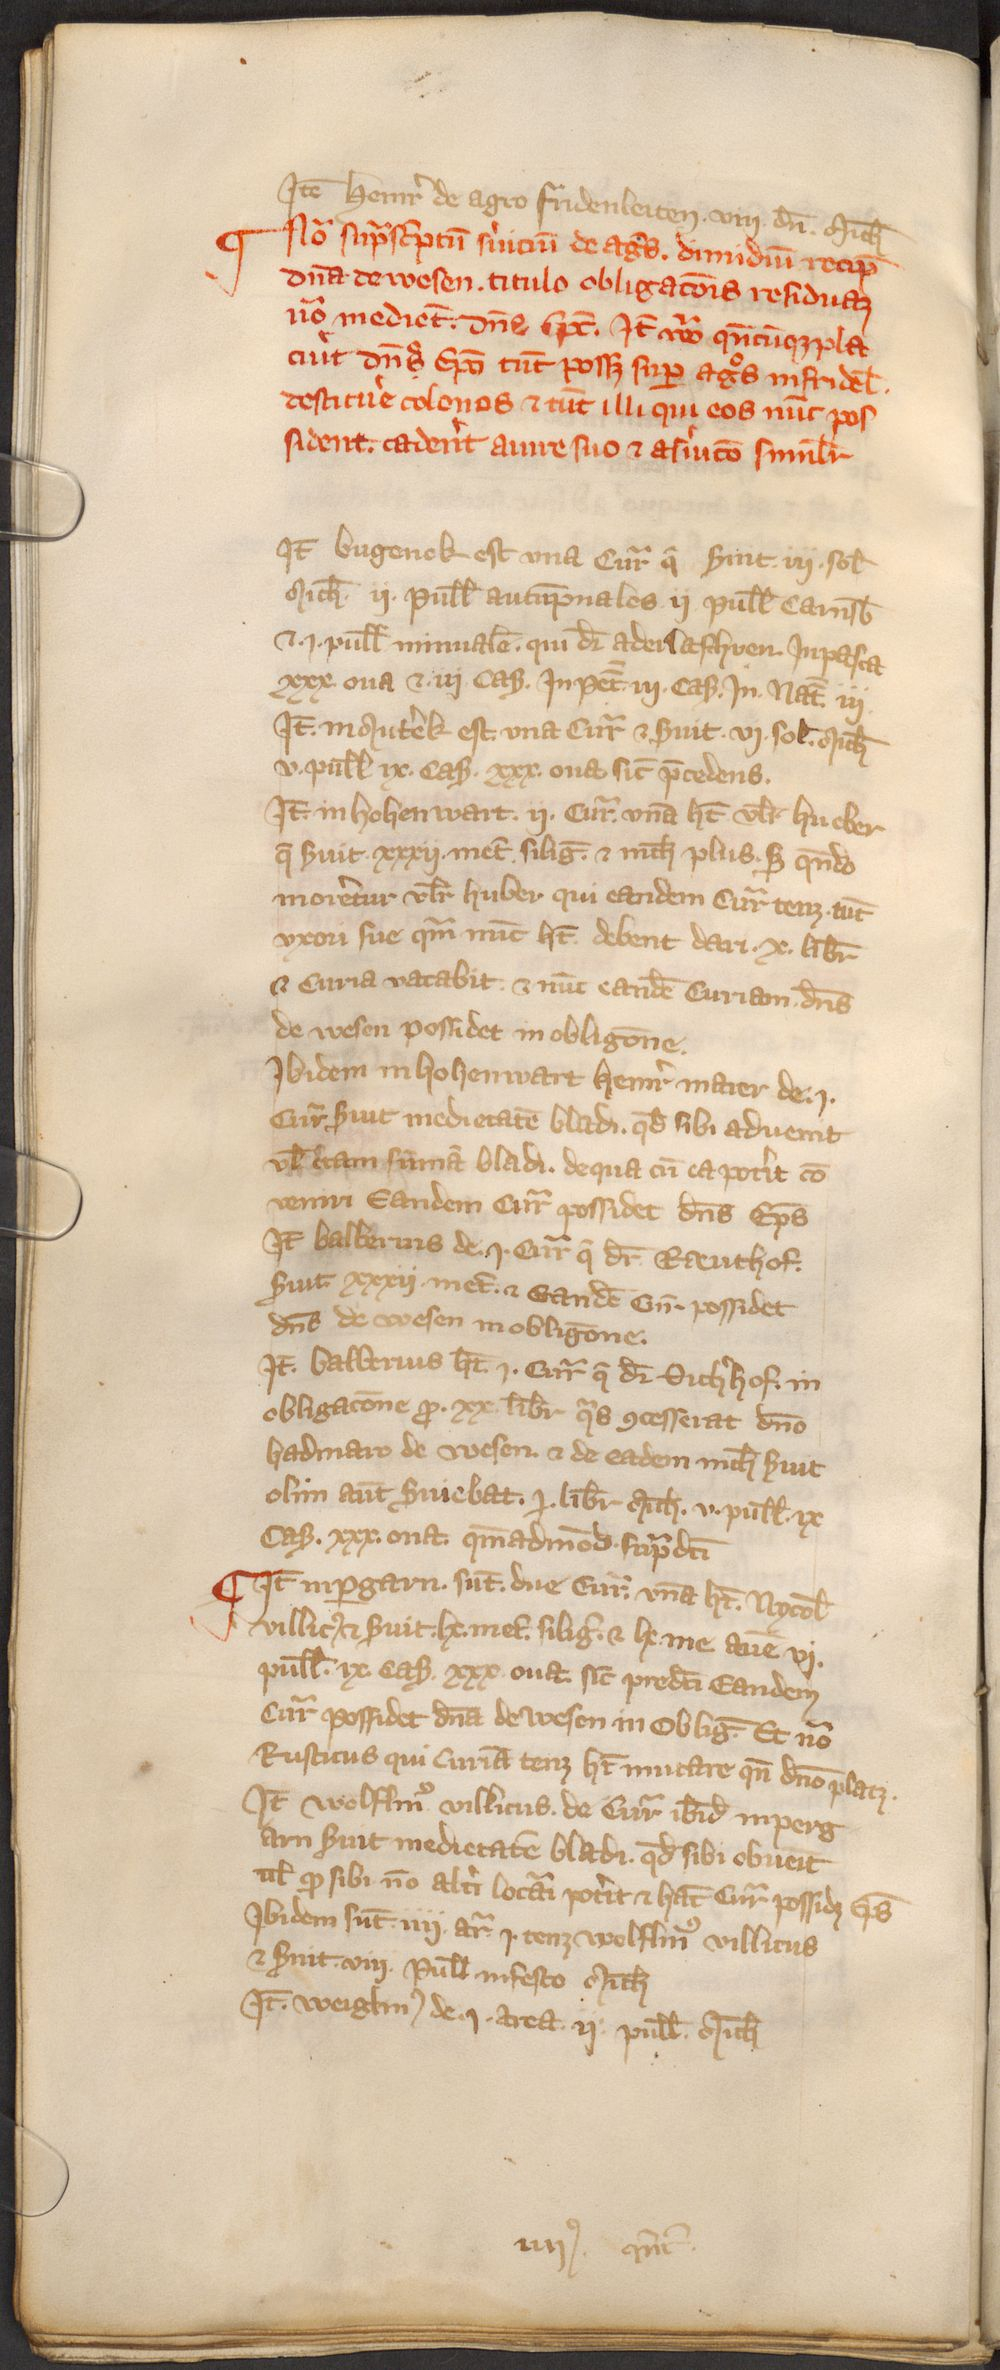 Itē Heinr̄ de agro fridenleiten. viii. dn̄. Mich̄
Nō sup̄scptū s̄uiciū de agr̄s. dimidiū recip̄
dn̄a de wesen. titulo obligac̄ois residuaʒ
ūo mediet̄. dn̄s Ep̄c. It̄ qn̄cūqʒ pla
cūit dn̄s Ep̄o tūc possʒ sup agros in fridel̄.
destituēre colonos ⁊ tūc illi qui eos nūc pos
sident. cadent̄ a iure suo ⁊ a s̄uico simil̄r
It̄ bugenek est vna Cur̄ q̄ s̄uit. iij. sol̄
Mich̄. ii. pull̄ autūpnales ii pull̄ Carnisb̄
⁊. j. pull̄ minuale. qui dr̄ aderlaschren. In pasca
xxx. oua ⁊. iii Cas̄. In Pet̄. iii. Cas̄. In. Nat̄. iij
It̄. in Mutek est. vna Cur̄ ⁊ s̄uit. vj. sol. Mich̄
v. pull̄ ix. Cas̄. xxx. oua sic̄ p̄cedens.
It̄. in hohenwart. ii. Cur̄. vnā ht̄ vlr̄ hueber
q̄ s̄uit. xxxij. met̄. siliḡ. ⁊ nich̄ plus. s̄ qn̄do
moret̄ur vlr̄ huber qui eandem Cur̄ tenʒ. tūc
vxori sue qm̄ nūc ht̄. debent dari. x. libr̄
⁊ Curia vacabit. ⁊ nūc eandē Curiam. dn̄s
de wesen possidet in obligōne.
Ibidem in hohenwart Heinr̄ maier de. j.
Cur̄ s̄uit medietatē bladi. qd̄ sibi aduenit
vl̄ c̄tam sūmā bladi. de qua cū ea pot̄it cō
veniri Eandem Cur̄ possidet dn̄s Ep̄s
It̄ balberus de. j. Cur̄ q̄ dr̄ Rauthof.
s̄uit xxxij. met̄. ⁊ Eandē Cur̄ possidet
dn̄s de wesen in obligōne.
It̄. balberius ht̄. j. Cur̄ q̄ dr̄ Dichhof. in
obligacōne p̄. xx. libr̄ q̄s ꝯcesserat dn̄o
hadmaro de wesen. ⁊ de eadem nich̄ s̄uit
olim aūt s̄uiebat. j. libr̄ Mich̄. v. pull̄. ix
Cas̄. xxx. oua. qm̄admod. sup̄dc̄i
It̄ in pgarn. sūt. due Cur̄. vnā ht̄. Nycol̄
villic9 ⁊ s̄uit. lx. met̄. siliḡ. ⁊ lx. me auē vj.
pull̄. ix. Cas̄. xxx. oua. sic̄ predc̄i Eandem
Cur̄ possidet dn̄a de wesen in Obliḡ. Et nō
Rusticus qui Curiā tenʒ ht̄ mutare qn̄ dn̄o placʒ.
It̄ wolflin9 villicus. de Cur̄ ibid̄ in perg
arn s̄uit medietatē bladi. qd̄ sibi obueīt
ul̄ p̄ sibi nō alt̄i locāi pot̄it ⁊ hāc Cur̄ possidʒ ep̄s
Ibidem sūt. iiij. ar̄. j. tenʒ wolflin9 villicus
⁊ s̄uit. viii. pull̄ in festo Mich̄
It̄. weiglin9 de. j. area. ii. pull̄. Mich̄
iiij9.